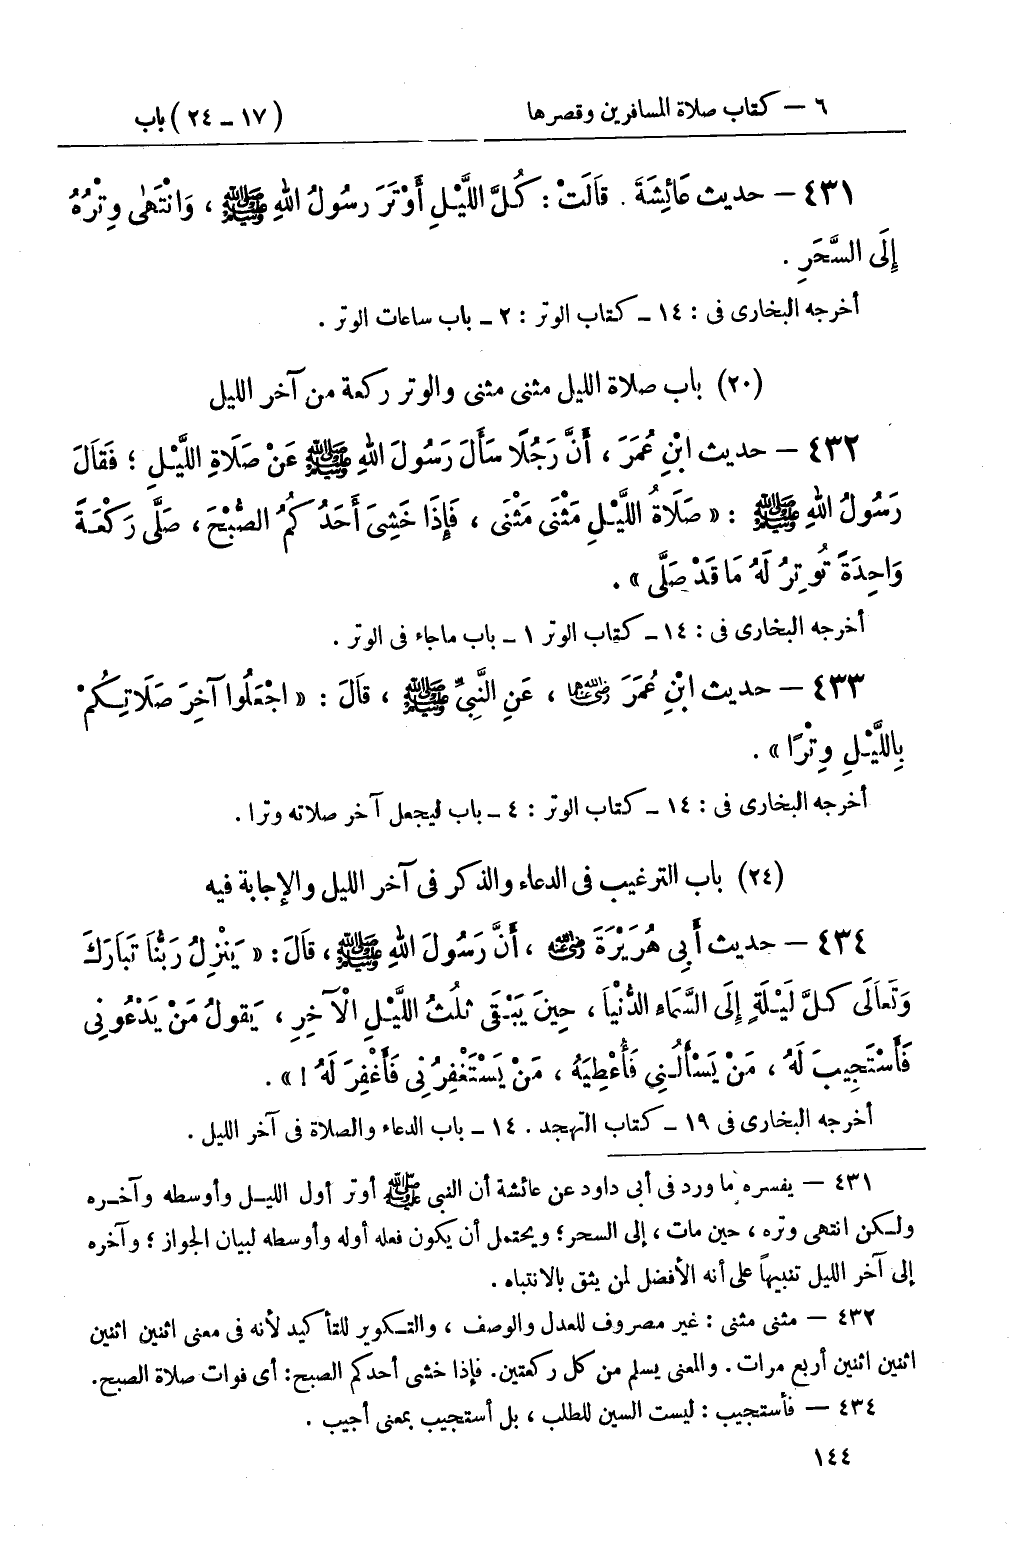 ٦ — كتاب صلاة المسافرين وقصرها (١٧ ـ ٢٤) باب
٤٣١ — حديث عَائِشَةَ . قَالَتْ : كُلَّ اللَّيْلِ أَوْتَرَ رسُولُ اللهِ ﷺ ، وَانْتَهٰى وِتْرُهُ
إِلَى السَّحَرِ .
أخرجه البخارى فى : ١٤ ـ كتاب الوتر : ٢ ـ باب ساعات الوتر .
(٢٠) باب صلاة الليل مثنى مثنى والوتر ركعة من آخر الليل
٤٣٢ — حديث ابْنِ عُمَرَ ، أَنَّ رَجُلًا سَأَلَ رَسُولَ اللهِ ﷺ عَنْ صَلَاةِ اللَّيْلِ ؛ فَقَالَ
رَسُولُ اللهِ ﷺ : « صَلَاةُ اللَّيْلِ مَثْنَى مَثْنَى ، فَإِذَا خَشِىَ أَحَدُكُمُ الصُّبْحَ ، صَلَّى رَكْعَةً
وَاحِدَةً تُوتِرُ لَهُ مَا قَدْ صَلَّى » .
أخرجه البخارى فى : ١٤ ـ كتاب الوتر ١ ـ باب ماجاء فى الوتر .
٤٣٣ — حديث ابْنِ عُمَرَ رضي الله عنهما ، عَنِ النَّبِيِّ ﷺ ، قَالَ : « اجْعَلُوا آخِرَ صَلَاتِكُمْ
بِاللَّيْلِ وِتْرًا » .
أخرجه البخارى فى : ١٤ ـ كتاب الوتر : ٤ ـ باب ليجعل آخر صلاته وترا .
(٢٤) باب الترغيب فى الدعاء والذكر فى آخر الليل والإجابة فيه
٤٣٤ — حديث أَبِى هُرَيْرَةَ رضي الله عنه ، أَنَّ رَسُولَ اللهِ ﷺ ، قَالَ : « يَنْزِلُ رَبُّنَا تَبَارَكَ
وَتَعَالَى كُلَّ لَيْلَةٍ إِلَى السَّمَاءِ الدُّنْيَا ، حِينَ يَبْقَى ثُلُثُ اللَّيْلِ الْآخِرِ ، يَقُولُ مَنْ يَدْعُونِى
فَأَسْتَجِيبَ لَهُ ، مَنْ يَسْأَلُنِى فَأُعْطِيَهُ ، مَنْ يَسْتَغْفِرُنِى فَأَغْفِرَ لَهُ ! » .
أخرجه البخارى فى ١٩ ـ كتاب التهجد . ١٤ ـ باب الدعاء والصلاة فى آخر الليل .
٤٣١ — يفسره ما ورد فى أبى داود عن عائشة أن النبى ﷺ أوتر أول الليل وأوسطه وآخره
ولكن انتهى وتره ، حين مات ، إلى السحر ؛ ويحتمل أن يكون فعله أوله وأوسطه لبيان الجواز ؛ وآخره
إلى آخر الليل تنبيهاً على أنه الأفضل لمن يثق بالانتباه .
٤٣٢ — مثنى مثنى : غير مصروف للعدل والوصف ، والتكرير للتأكيد لأنه فى معنى اثنين اثنين
اثنين اثنين أربع مرات . والمعنى يسلم من كل ركعتين . فإذا خشى أحدكم الصبح : أى فوات صلاة الصبح .
٤٣٤ — فأستجيب : ليست السين للطلب ، بل أستجيب بمعنى أجيب .
١٤٤